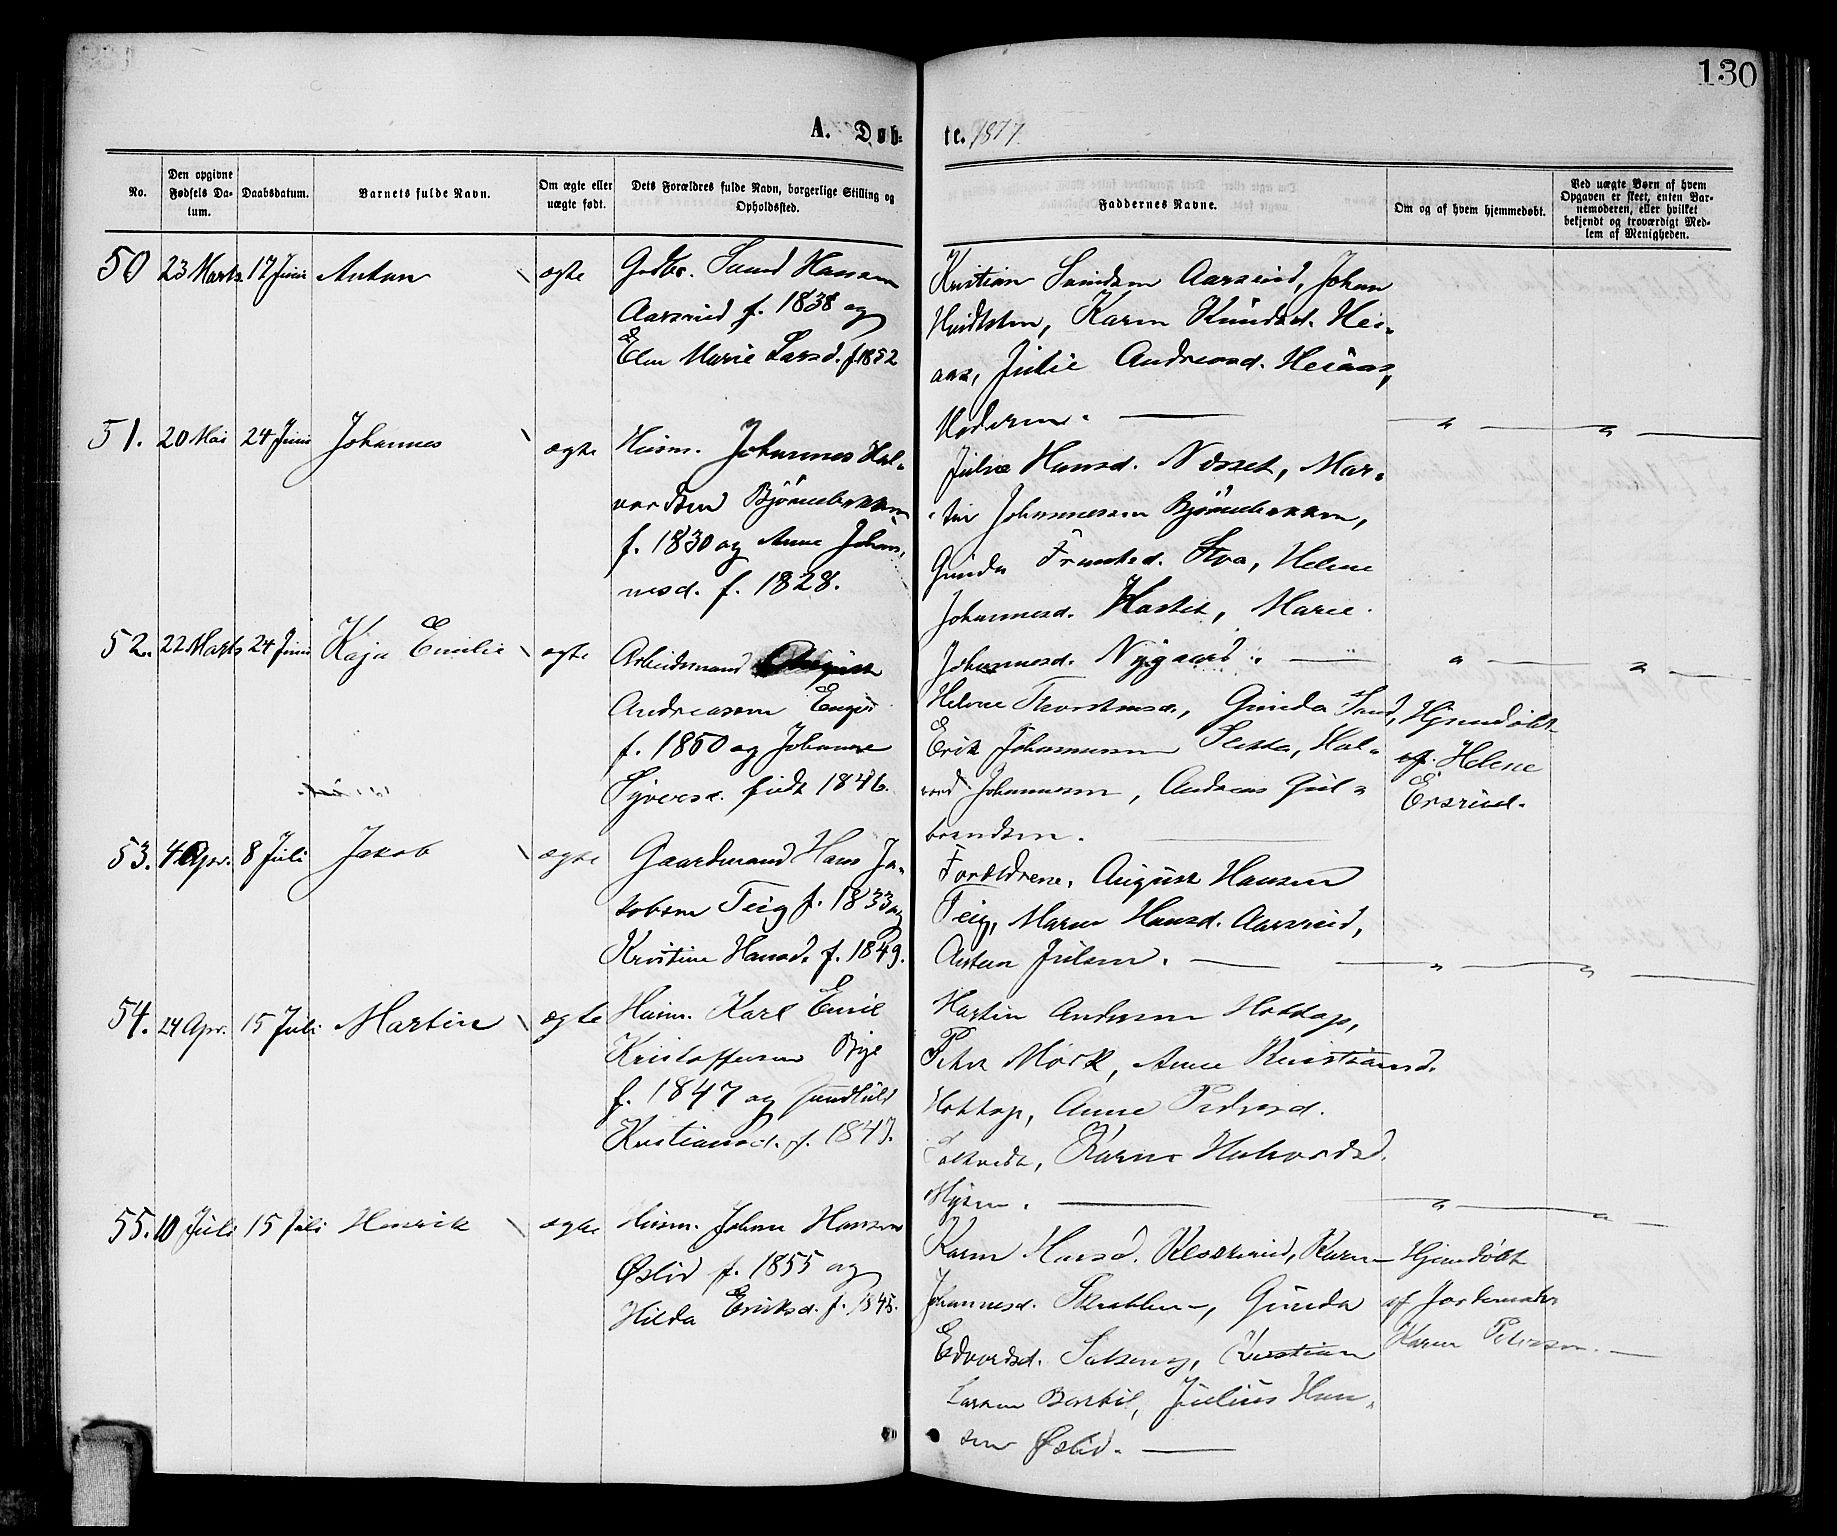 130
A. Døb- te. 1877.
No.
Den opgivne Fødsels Da-tum.
Daabsdatum.
Barnets fulde Navn.
Om ægte eller uægte født.
Dets Forældres fulde Navn, borgerlige Stilling og Opholdssted.
Faddernes Navne.
Om og af hvem hjemmedøbt.
Ved uægte Børn af hvem Opgaven er skeet, enten Bar-nemoderen, eller hvilket bekjendt og troværdigt Med-lem af Menigheden.
50 23 Marts 17 Juni Anton ægte
Gbr. Hansen
Aarsrud f. 1838 og
Elen Marie Larsd. f. 1852
Kristian Aarsrud, Johan
Karen Knudsd. Hei-
aas, Julie Andreasd. Heiaas,
Moderen. — " — " —
51. 20 Mai 24 Juni Johannes ægte
Husm. Johannes Hal-
vordsen
f. 1830 og Anne Johan-
nesd. f. 1828.
Julie Hansd. Nesset, Mar-
tin Johannesen
Gunda Helene
Johannesd. Marie
Johannesd. Nygaard. — " — " —
52. 22 Marts 24 Juni Kaja Emilie ægte
Arbeidsmand August
Andreasen Enger
f. 1850 og Johanne
Syversd. født 1846.
Helene Thorstensd., Gunda
Erik Johannesen Hal-
vord Johannesen, Andreas Gul-
brandsen. —
Hjemdøbt
af Helene
Ersrud.
53. 4 Apr. 8 Juli Jakob ægte
Gaardmand Hans Ja-
kobsen Teig f. 1833 og
Kristine Hansd. f. 1849.
Forældrene, August Hansen
Teig, Maren Hansd. Aarsrud,
Anton Julsen. — " — " —
54. 24 Apr. 15 Juli Martin ægte
Husm. Karl Emil
Kristoffersen Bye
f. 1847 og Gundhild
Kristiansd. f. 1847.
Martin Andersen
Peter Mørk, Anne Kristiansd.
Anne Pedersd.
Karen Halvordsd.
Myren. — " — " —
55. 10 Juli 15 Juli Henrik ægte
Husm. Johan Hansen
Øslid f. 1855 og
Hilda Eriksd. f. 1845.
Karen Hansd. Karen
Johannesd. Gunda
Edvardsd. Kristian
Larsen Julius Han-
sen Øslid. —
Hjemdøbt
af Jordemoder
Karen Petersen. —